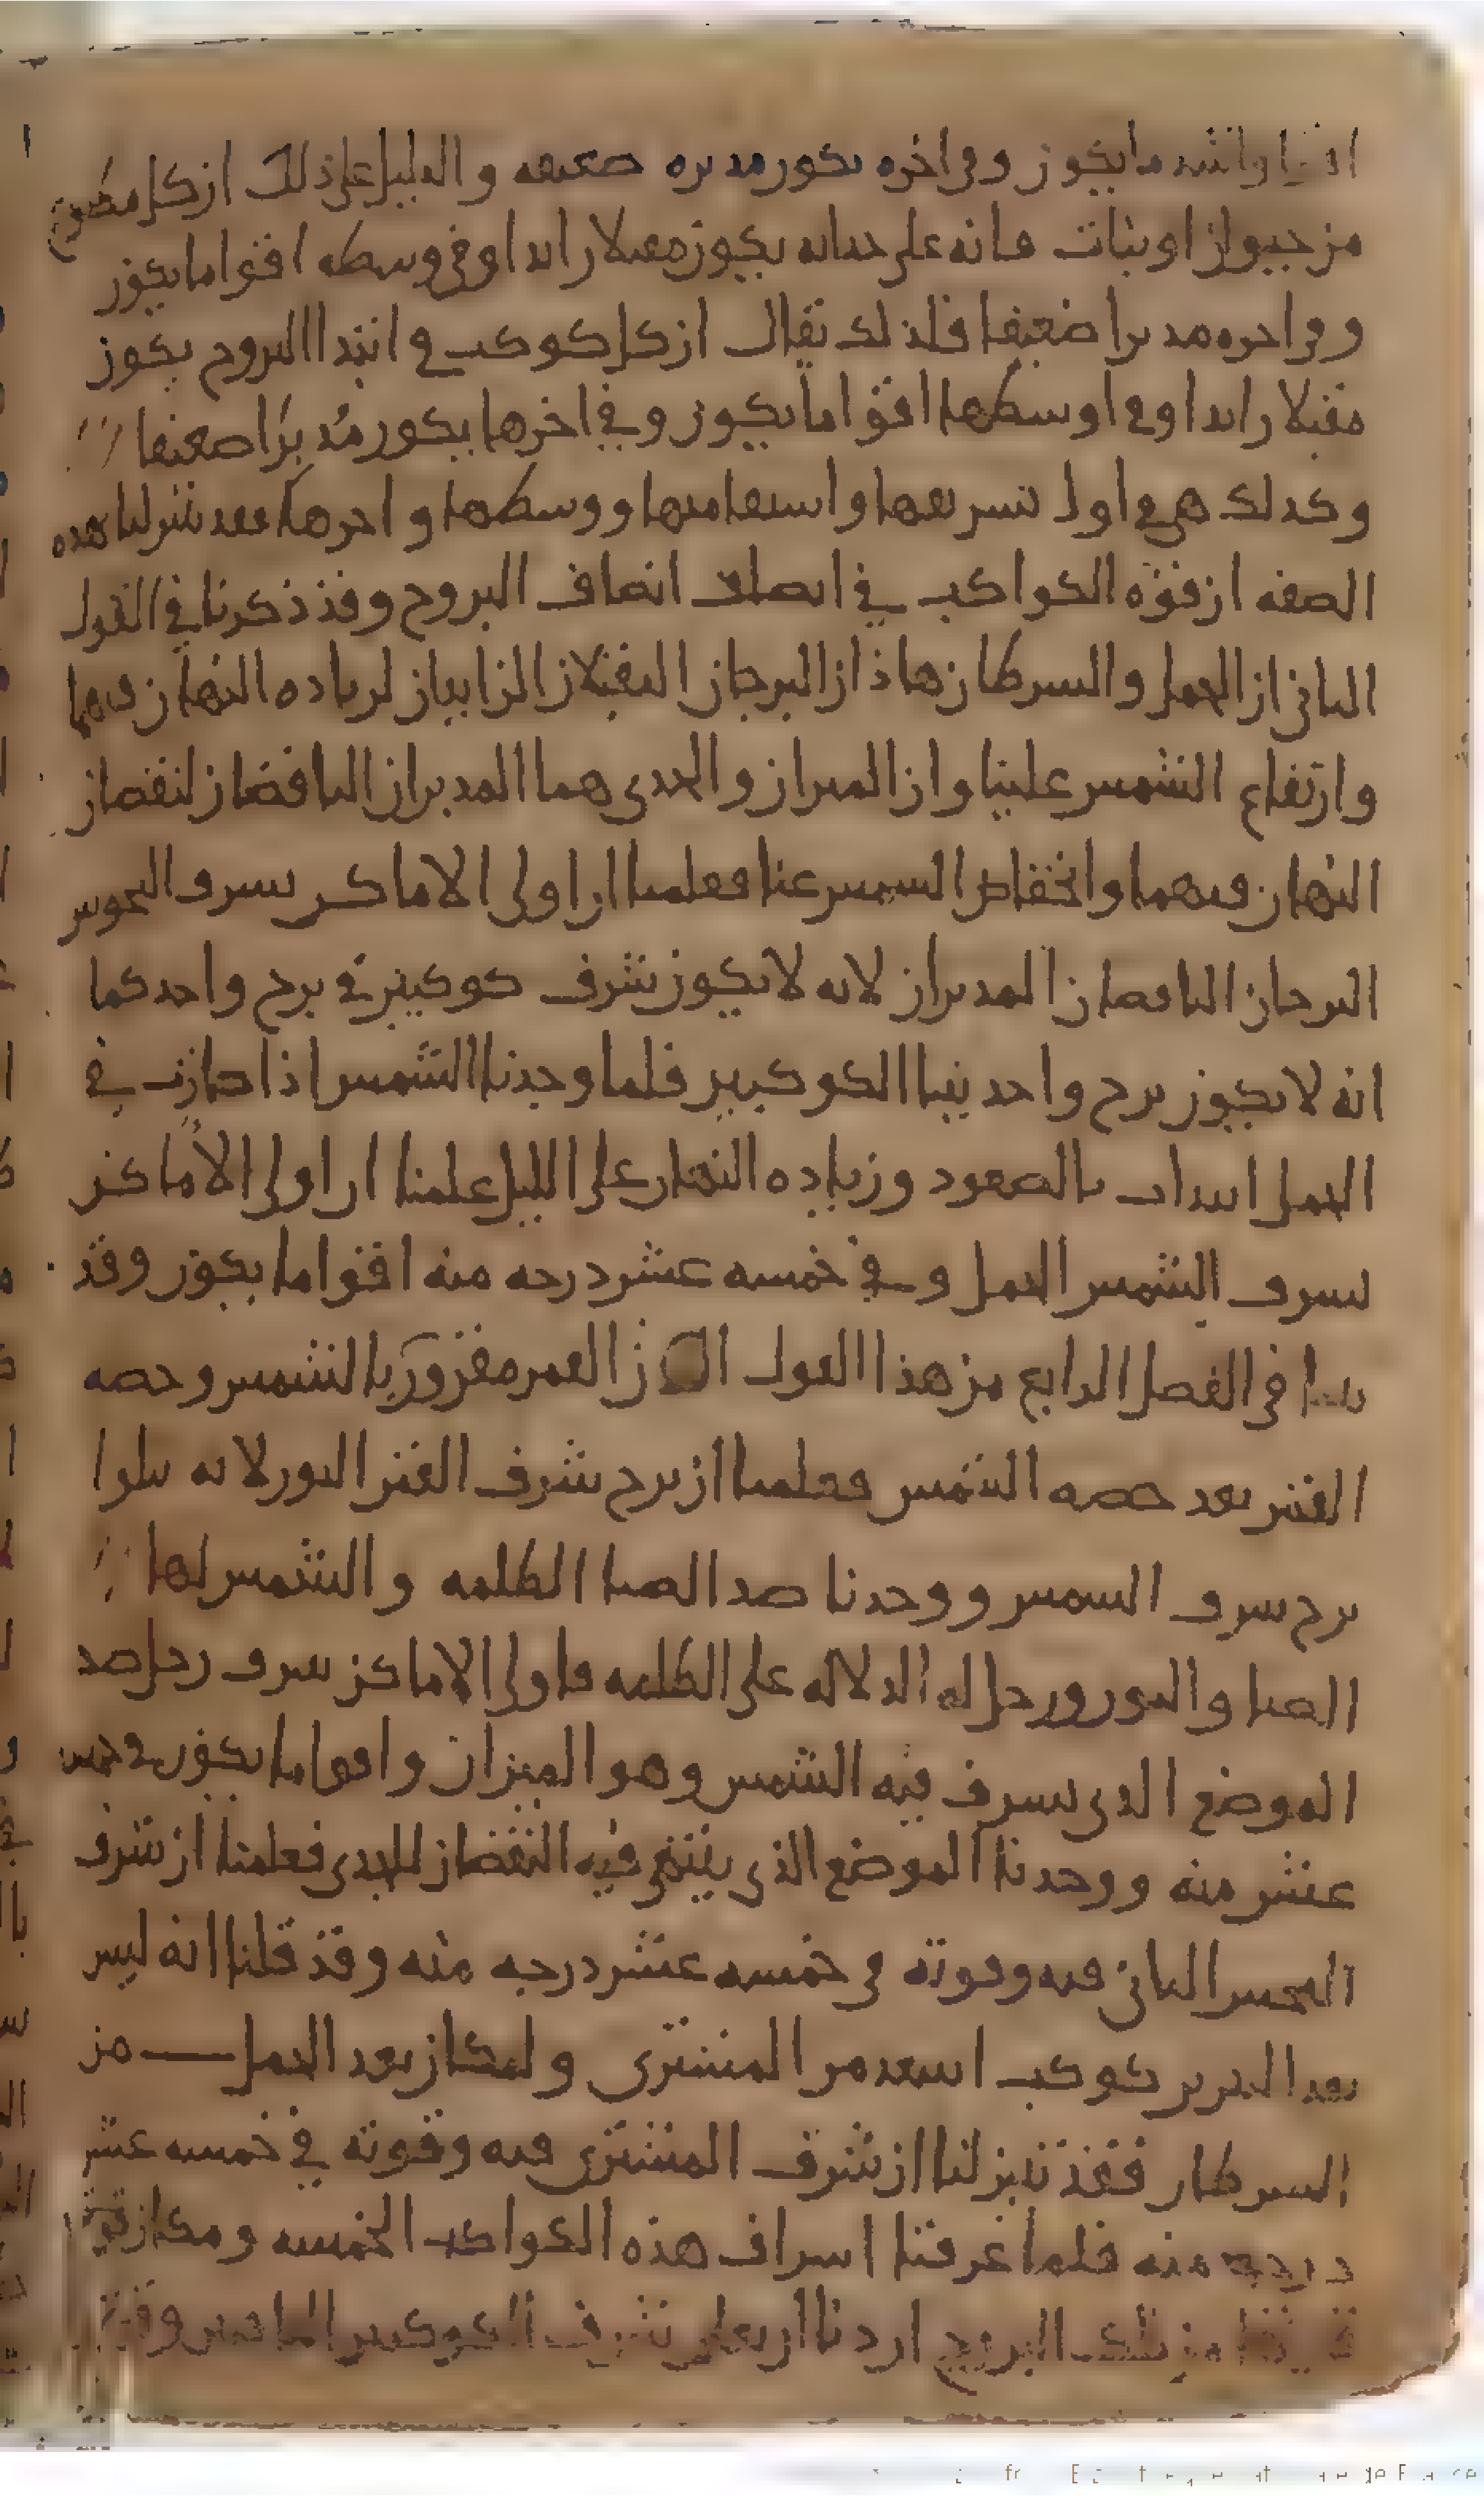 واشد ما يكون وفي اخره يكون مدبره ضعيفه والدليل على ذلك ان كل
من حيوان او نبات فانه على حداثه يكون مقبلا زايدا وفي وسطه اقوا ما يكون
وفي اخره مدبرا ضعيفا فلذلك نقال ان كل كوكب في ابتدا البروج يكون
مقبلا زايدا وفي اوسطها اقوا ما يكون وفي اخرها يكون مدبرا ضعيفا
وكذلك هي في اول تشريقها واستقامتها ووسطها واخرها فقد تبين لنا بهذه
الصفه ان قوه الكواكب في انصاف البروج وقد ذكرنا في القول
الثاني ان الحمل والسرطان هاذان البرجان المقبلان الزايدان لزياده النهار فيهما
وارتفاع الشمس علينا وان الميزان والجدي هما المدبران الناقصان لنقصان
النهار فيهما وانخفاض الشمس عنا فعلمنا ان اولى الاماكن بشرف النحوس
البرجان الناقصان المدبران لانه لا يكون شرف كوكبين في برج واحد كما
انه لا يكون برج واحد بيتا لكوكبين فلما وجدنا الشمس اذا صارت في
الحمل ابتدات بالصعود وزياده النهار على الليل علمنا ان اولى الاماكن
بشرف الشمس الحمل وفي خمسه عشر درجه منه اقوا ما يكون وقد
في الفصل الرابع من هذا القول ان القمر مقرون بالشمس وحصه
القمر بعد حصه الشمس فعلمنا ان برج شرف القمر الثور لانه يتلوا
برج شرف الشمس ووجدنا ضد الضيا الظلمه والشمس لها
الضيا والنور وزحل له الدلاله على الظلمه فاولى الاماكن بشرف زحل ضد
الموضع الذي تشرف فيه الشمس وهو الميزان واقوا ما يكون في خمس
عشر منه ووجدنا الموضع الذي ينتهي فيه النقصان للجدي فعلمنا ان شرف
النحس الثاني فيه وقوته في خمسه عشر درجه منه وقد قلنا انه ليس
بعد النيرين كوكب اسعد من المشتري وليس كان بعد الحمل من
السرطان فقد تبين لنا ان شرف المشتري فيه وقوته في خمسه عشر
درجه منه فلما عرفنا اشراف هذه الكواكب الخمسه ومكان
من تلك البروج اردنا ان نعلم شرف الكوكبين الباقيين